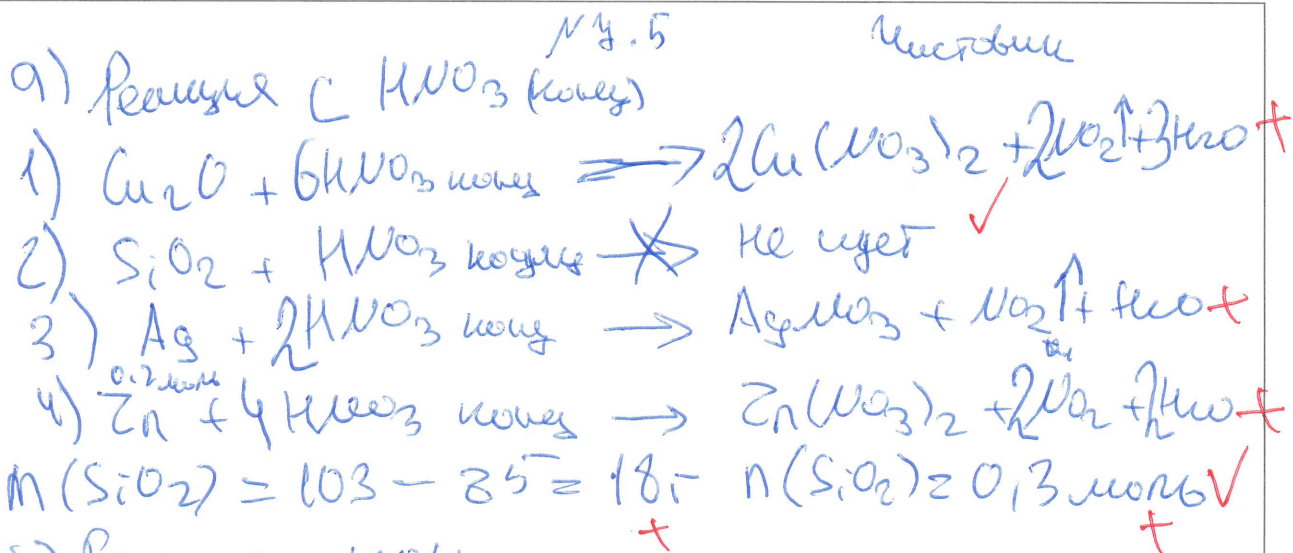 № 4.5 Чистовик
а) Реакция с HNO3 (конц)
1) Cu2O + 6HNO3 конц → 2Cu(NO3)2 + 2NO2↑ + 3H2O +
2) SiO2 + HNO3 конц → не идет ✓
3) Ag + 2HNO3 конц → AgNO3 + NO2↑ + H2O +
0,2 моль
4) Zn + 4HNO3 конц → Zn(NO3)2 + 2NO2 + 2H2O +
m(SiO2) = 103 - 85 = 18г n(SiO2) = 0,3 моль ✓
+ +